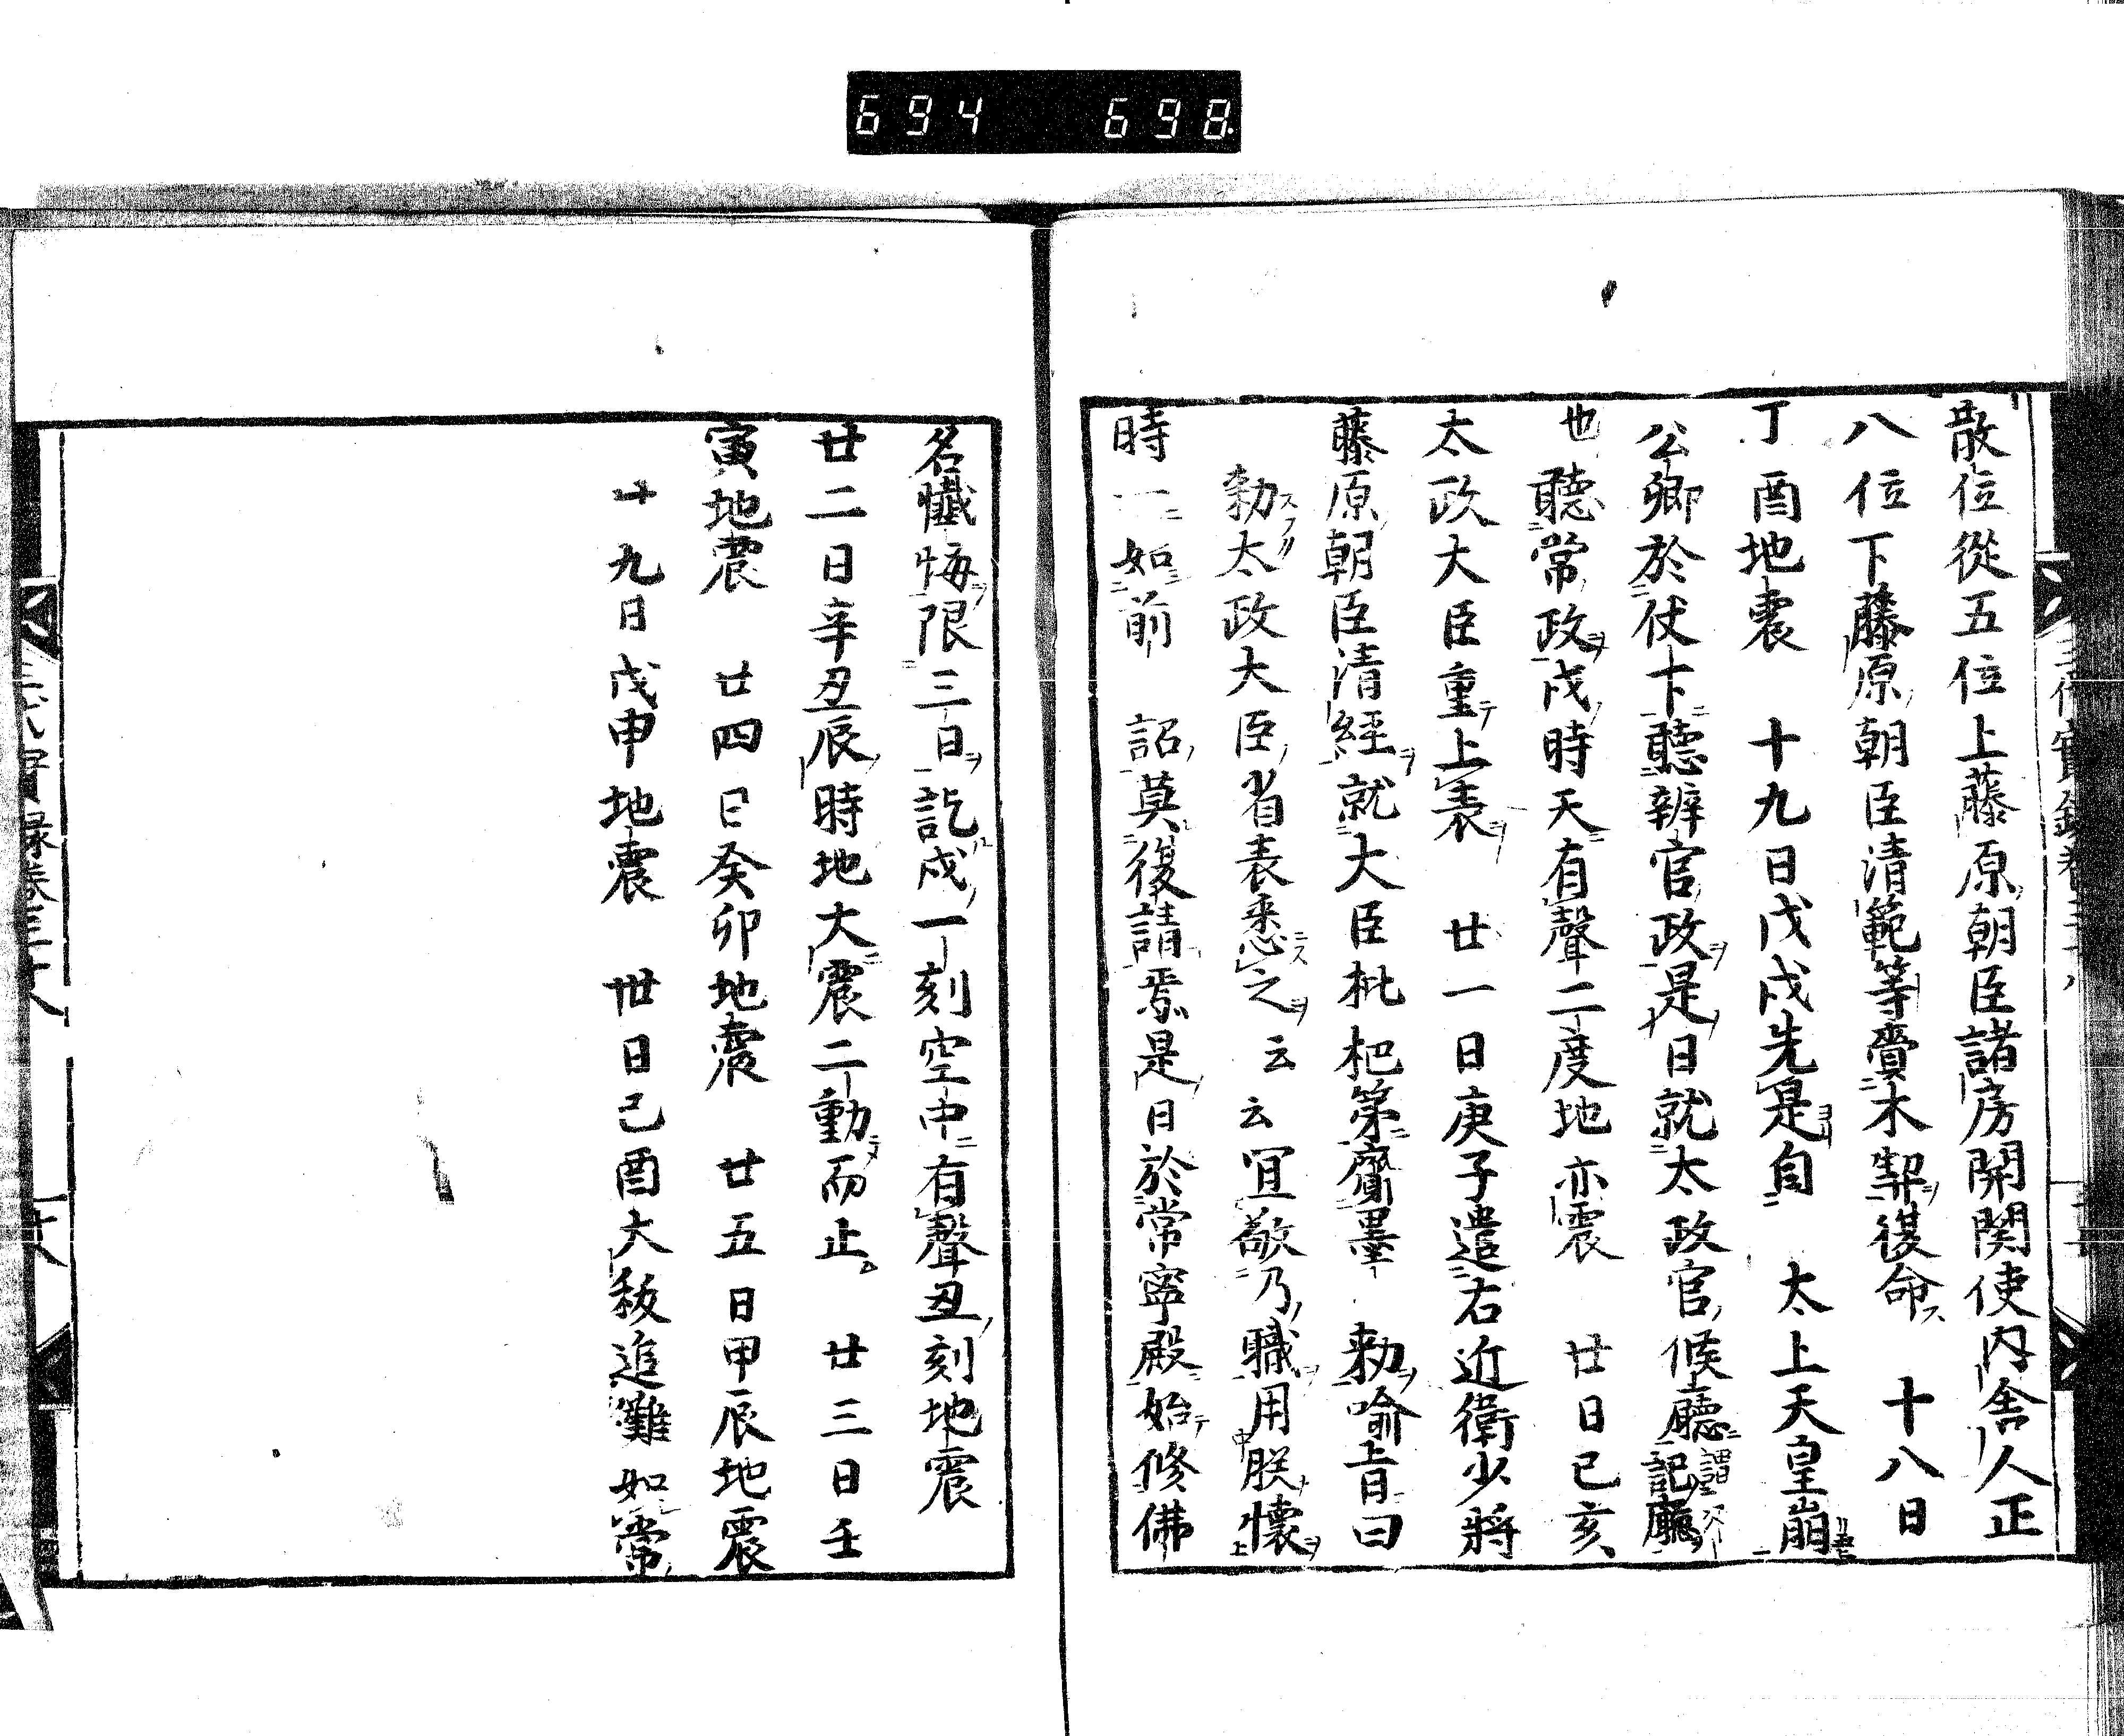 694 698
散位從五位上藤原朝臣諸房開関使内舎人正
八位下藤原朝臣清範等賷木契復命 十八日
丁酉地震 十九日戊戌先是自 太上天皇崩
公卿於仗下聽辨官政是日就太政官候廳
也聽常政戌時天有聲二度地亦震 廿日己亥
太政大臣重上表 廿一日庚子遣右近衛少將
藤原朝臣清經就大臣枇杷第齎墨 勅喻旨曰
勅太政大臣省表悉之云云宜敬乃職用朕懷
時一如前 詔莫復請焉是日於常寧殿始修佛
名懺悔限三日訖戌一刻空中有聲丑刻地震
廿二日辛丑辰時地大震二動而止 廿三日壬
寅地震 廿四日癸卯地震 廿五日甲辰地震
廾九日戊申地震 丗日己酉大秡追儺如常
三代實録卷三十八
十八